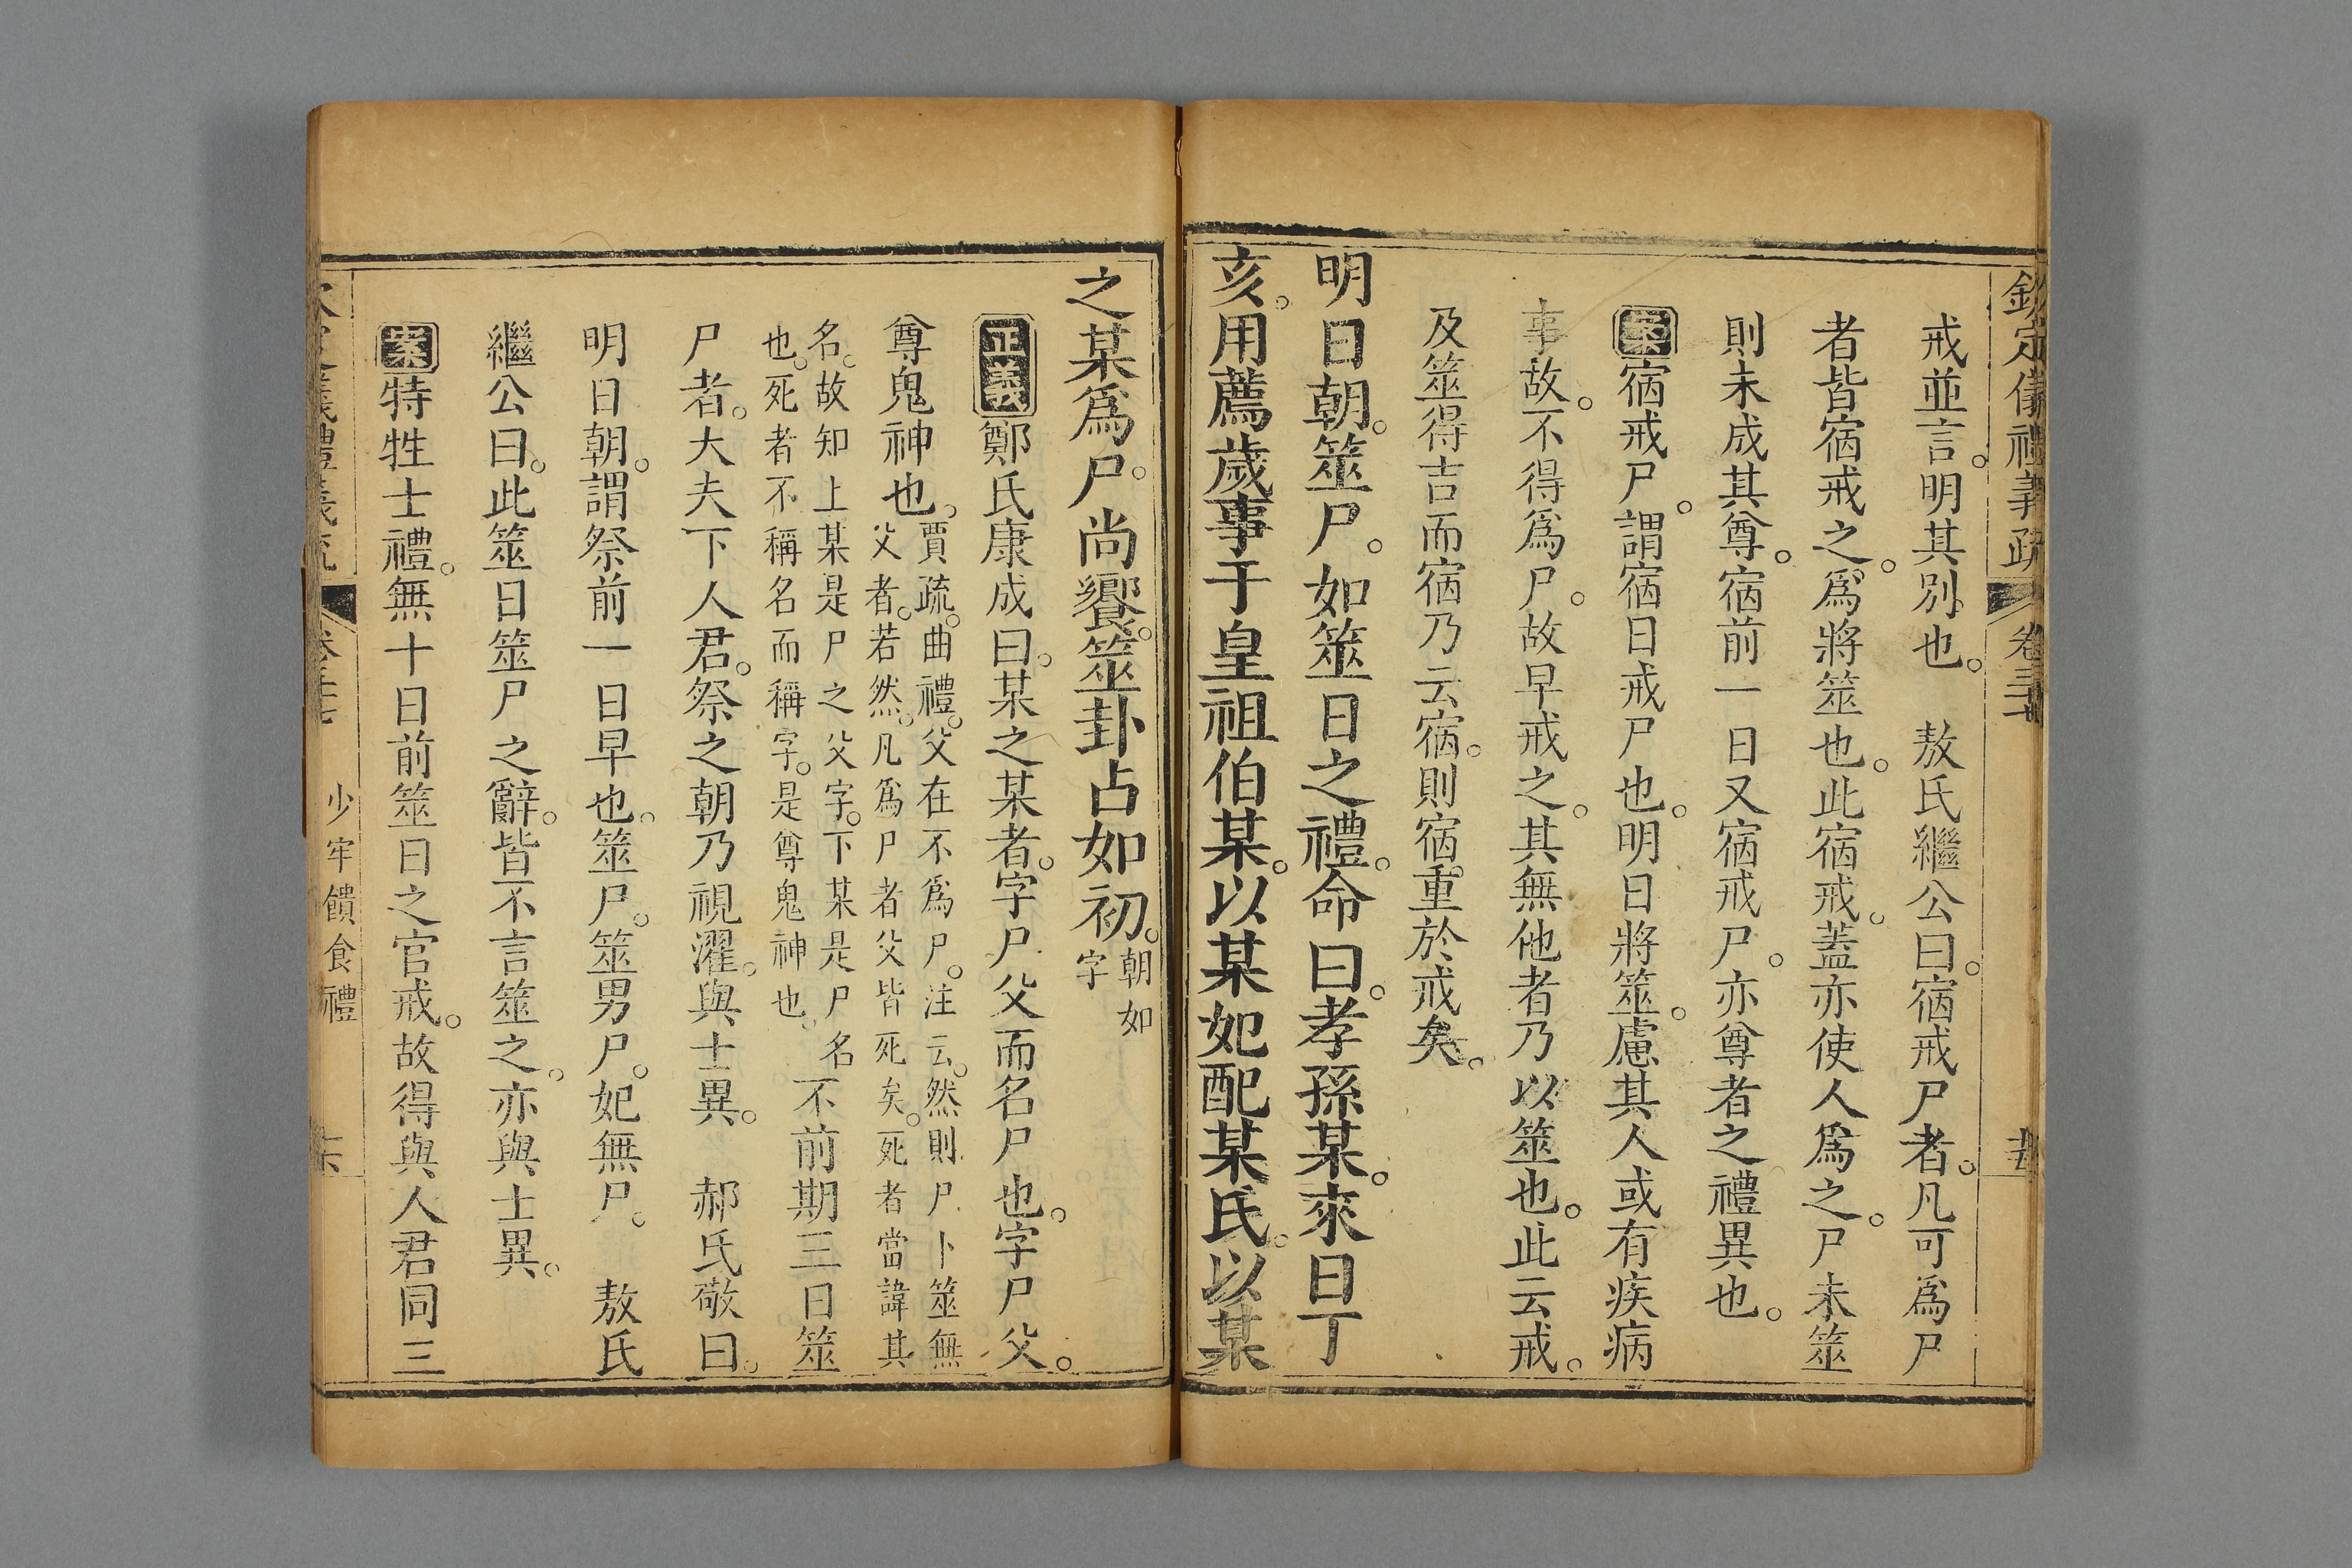 欽定儀禮義疏 卷三十七
戒並言。明其別也。 敖氏繼公曰。宿戒尸者。凡可爲尸
者皆宿戒之。爲將筮也。此宿戒。蓋亦使人爲之。尸未筮
則未成其尊。宿前一日又宿戒尸。亦尊者之禮異也。
案宿戒尸。謂宿日戒尸也。明日將筮。慮其人或有疾病
事故。不得爲尸。故早戒之。其無他者乃以筮也。此云戒。
及筮得吉而宿乃云宿。則宿重於戒矣。
明日朝。筮尸。如筮日之禮。命曰。孝孫某。來日丁
亥。用薦歲事于皇祖伯某。以某妃配某氏。以某
之某爲尸。尚饗。筮卦占如初。朝如
字
正義鄭氏康成曰。某之某者。字尸父而名尸也。字尸父。
尊鬼神也。賈疏。曲禮。父在不爲尸。注云。然則尸卜筮無
父者。若然。凡爲尸者父皆死矣。死者當諱其
名。故知上某是尸之父字。下某是尸名
也。死者不稱名而稱字。是尊鬼神也。不前期三日筮
尸者。大夫下人君。祭之朝乃視濯。與士異。 郝氏敬曰。
明日朝。謂祭前一日早也。筮尸。筮男尸。妃無尸。 敖氏
繼公曰。此筮日筮尸之辭。皆不言筮之。亦與士異。
案特牲士禮。無十日前筮日之官戒。故得與人君同三
少牢饋食禮